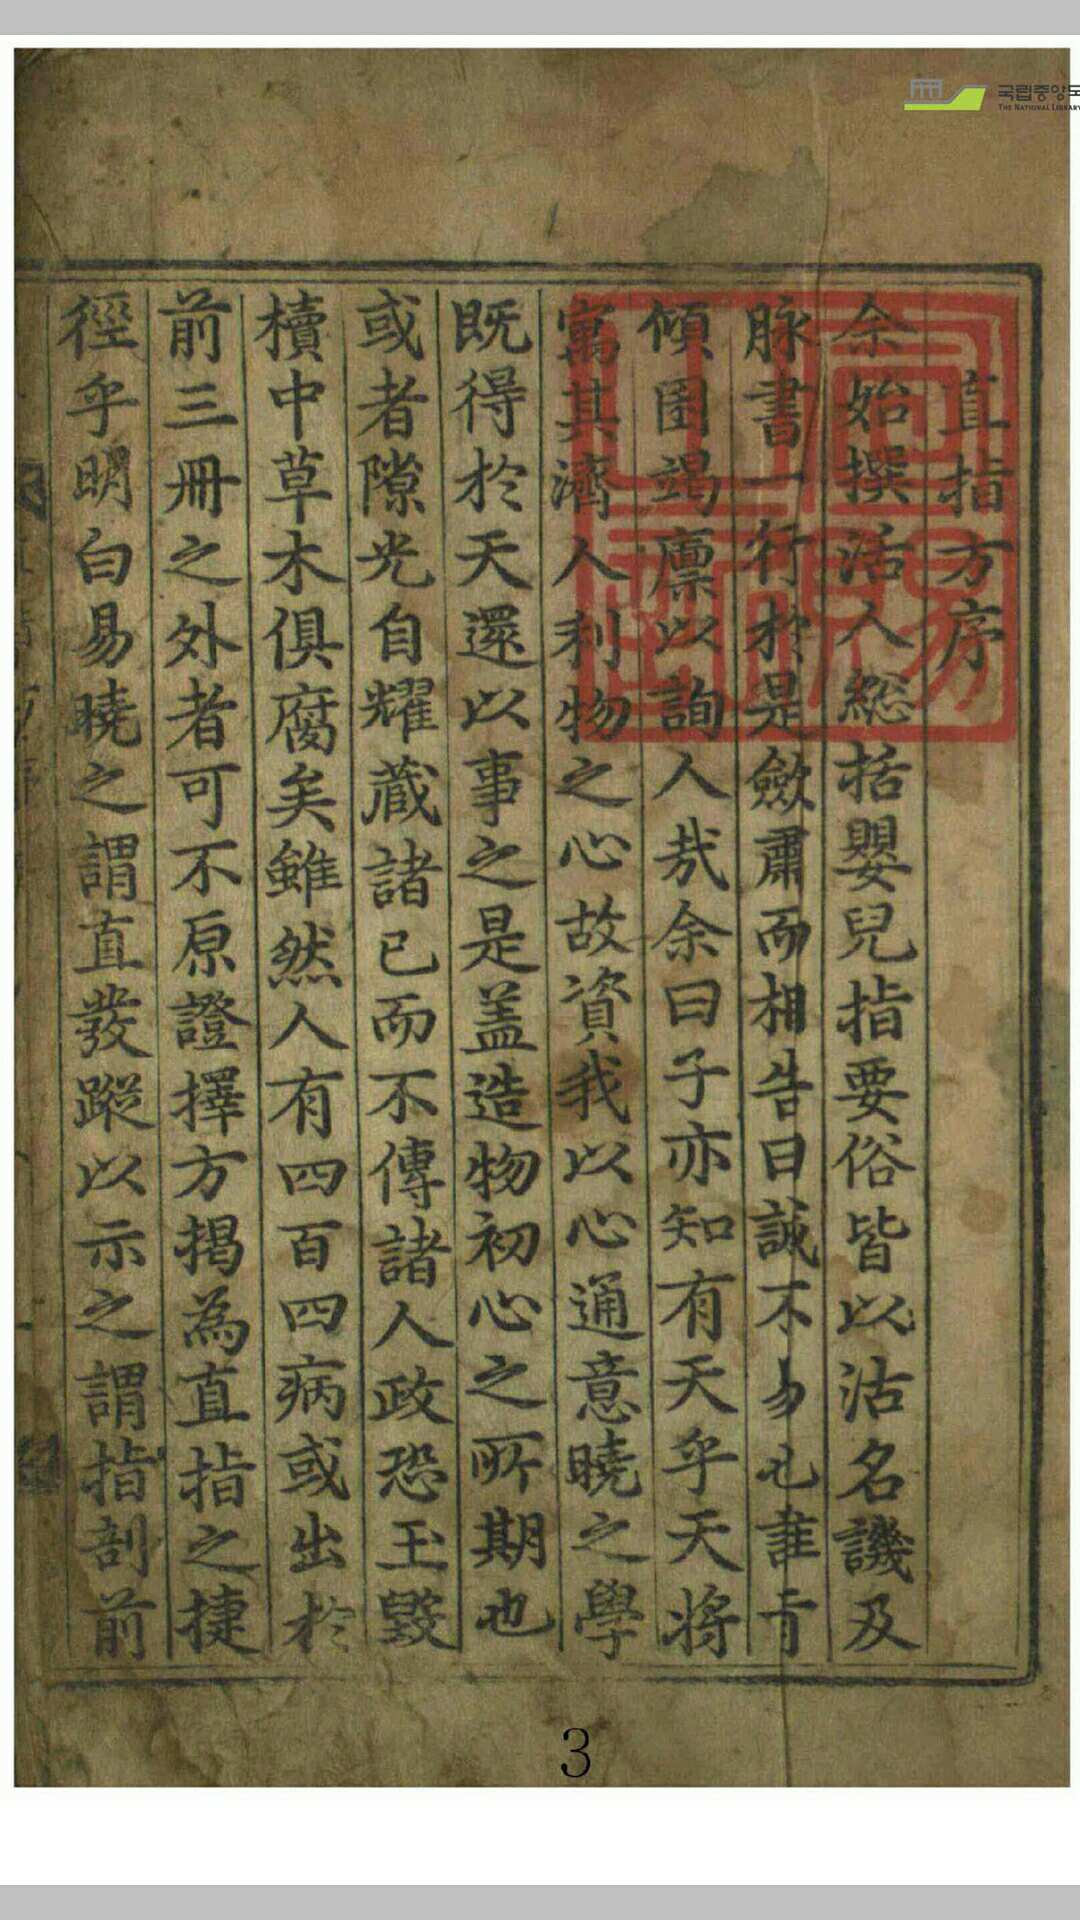 국립중앙도
THE NATIONAL LIBRARY
直指方序
余始撰活人總括嬰兒指要俗皆以沽名譏及
脉書一行於是斂肅而相告曰誠不易也誰肯
傾囷竭廪以詢人哉余曰子亦知有天乎天將
寓其濟人利物之心故資我以心通意曉之學
既得於天還以事之是盖造物初心之所期也
或者隙光自耀蔵諸已而不傳諸人政恐玉毀
櫝中草木俱腐矣雖然人有四百四病或出於
前三冊之外者可不原證擇方揭為直指之捷
徑乎明白易曉之謂直發蹤以示之謂指剖前
3